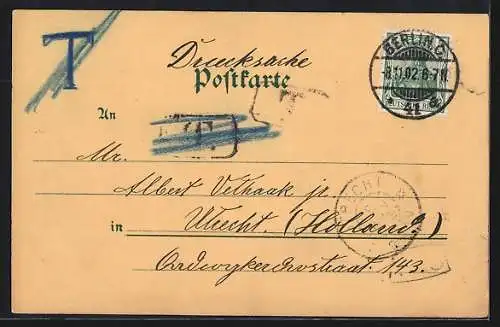 T
Drucksache
Postkarte
BERLIN.C.
-8.11.02.6-7N.
DEUTSCHES REICH
An
T
Mr.
Albert Vethaak jr.
in Utrecht. (Holland.)
143.